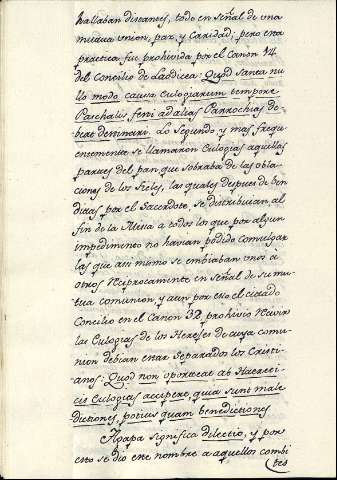 hallaban distantes, todo en señal de una
mutua union, paz, y Caridad; pero esta
practica fue prohivida por el Canon 14
del Concilio de Laodicea: Quod Sancta nu
llo modo causa Eulogiarum tempore
Paschalis feri ad alias Parrochias de-
beat
Lo Segundo, y mas frequ
entemente se llamaron Eulogias aquellas
partes del pan que sobraba de las obla
ciones de los Fieles, las quales despues de ben
ditas por el Sacerdote, se distribuian al
fin de la Missa a todos los que por algun
impedimento no havian podido comulgar
las que assi mismo se embiaban unos a
otros reciprocamente en señal de su mu
tua comunion, y aun por eso el citado
Concilio en el Canon 32 prohivio recivir
las Eulogias de los Hereges de cuya comu
nion debian estar separados los Cristi
anos: Quod non oporteat ab Haereti
cis Eulogias accipere, quia sunt male
dictiones, potius quam benedictiones
Agapa significa dilectio, y por
esto se dio este nombre a aquellos combi
tes